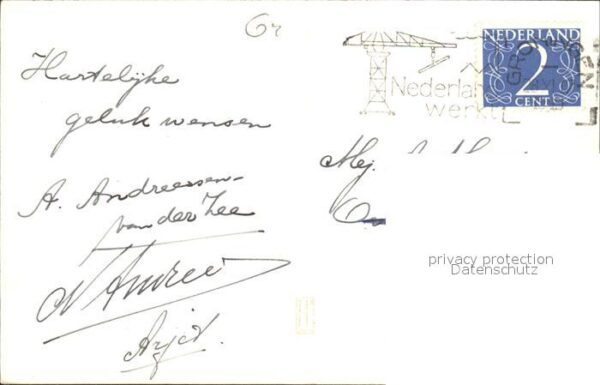 Gr
NEDERLAND
2
CENT
GRO
Nederland
werkt
Hartelijke
geluk wensen
Mej.
A. Andreessen-
van der Zee
privacy protection
Datenschutz